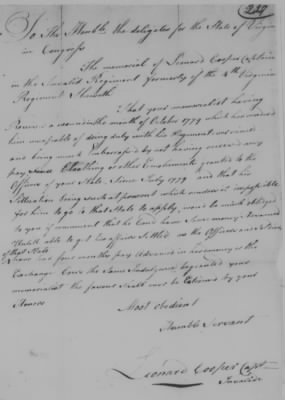 229
To The Honble. the delegates for the State of Virgin
in Congress
The memorial of Leonard Cooper Captain
in the Invalid Regiment formerly of the 4th Virginia
Regiment Sheweth
That your memorialist having
Received a wound in the month of October 1779 which rendered
him uncapable of doing duty with his Regiment
and being much Embarrassed by not having received any
pay, Cloathing or other Emoluments granted to the
Officers of your State, Since July 1779 and that his
Situation being such at present which renders it impossible
for him to go to that State to apply, would be much obliged
to you if convenient that he could have some money Advanced
Untill able to get his affairs Settled as the Officers
of that State
have had four months pay Advanced
Exchange
memorialist the favour shall be Esteemed by your
Honors
Most obedient
Humble Servant
Leonard Cooper Capt
Invalids